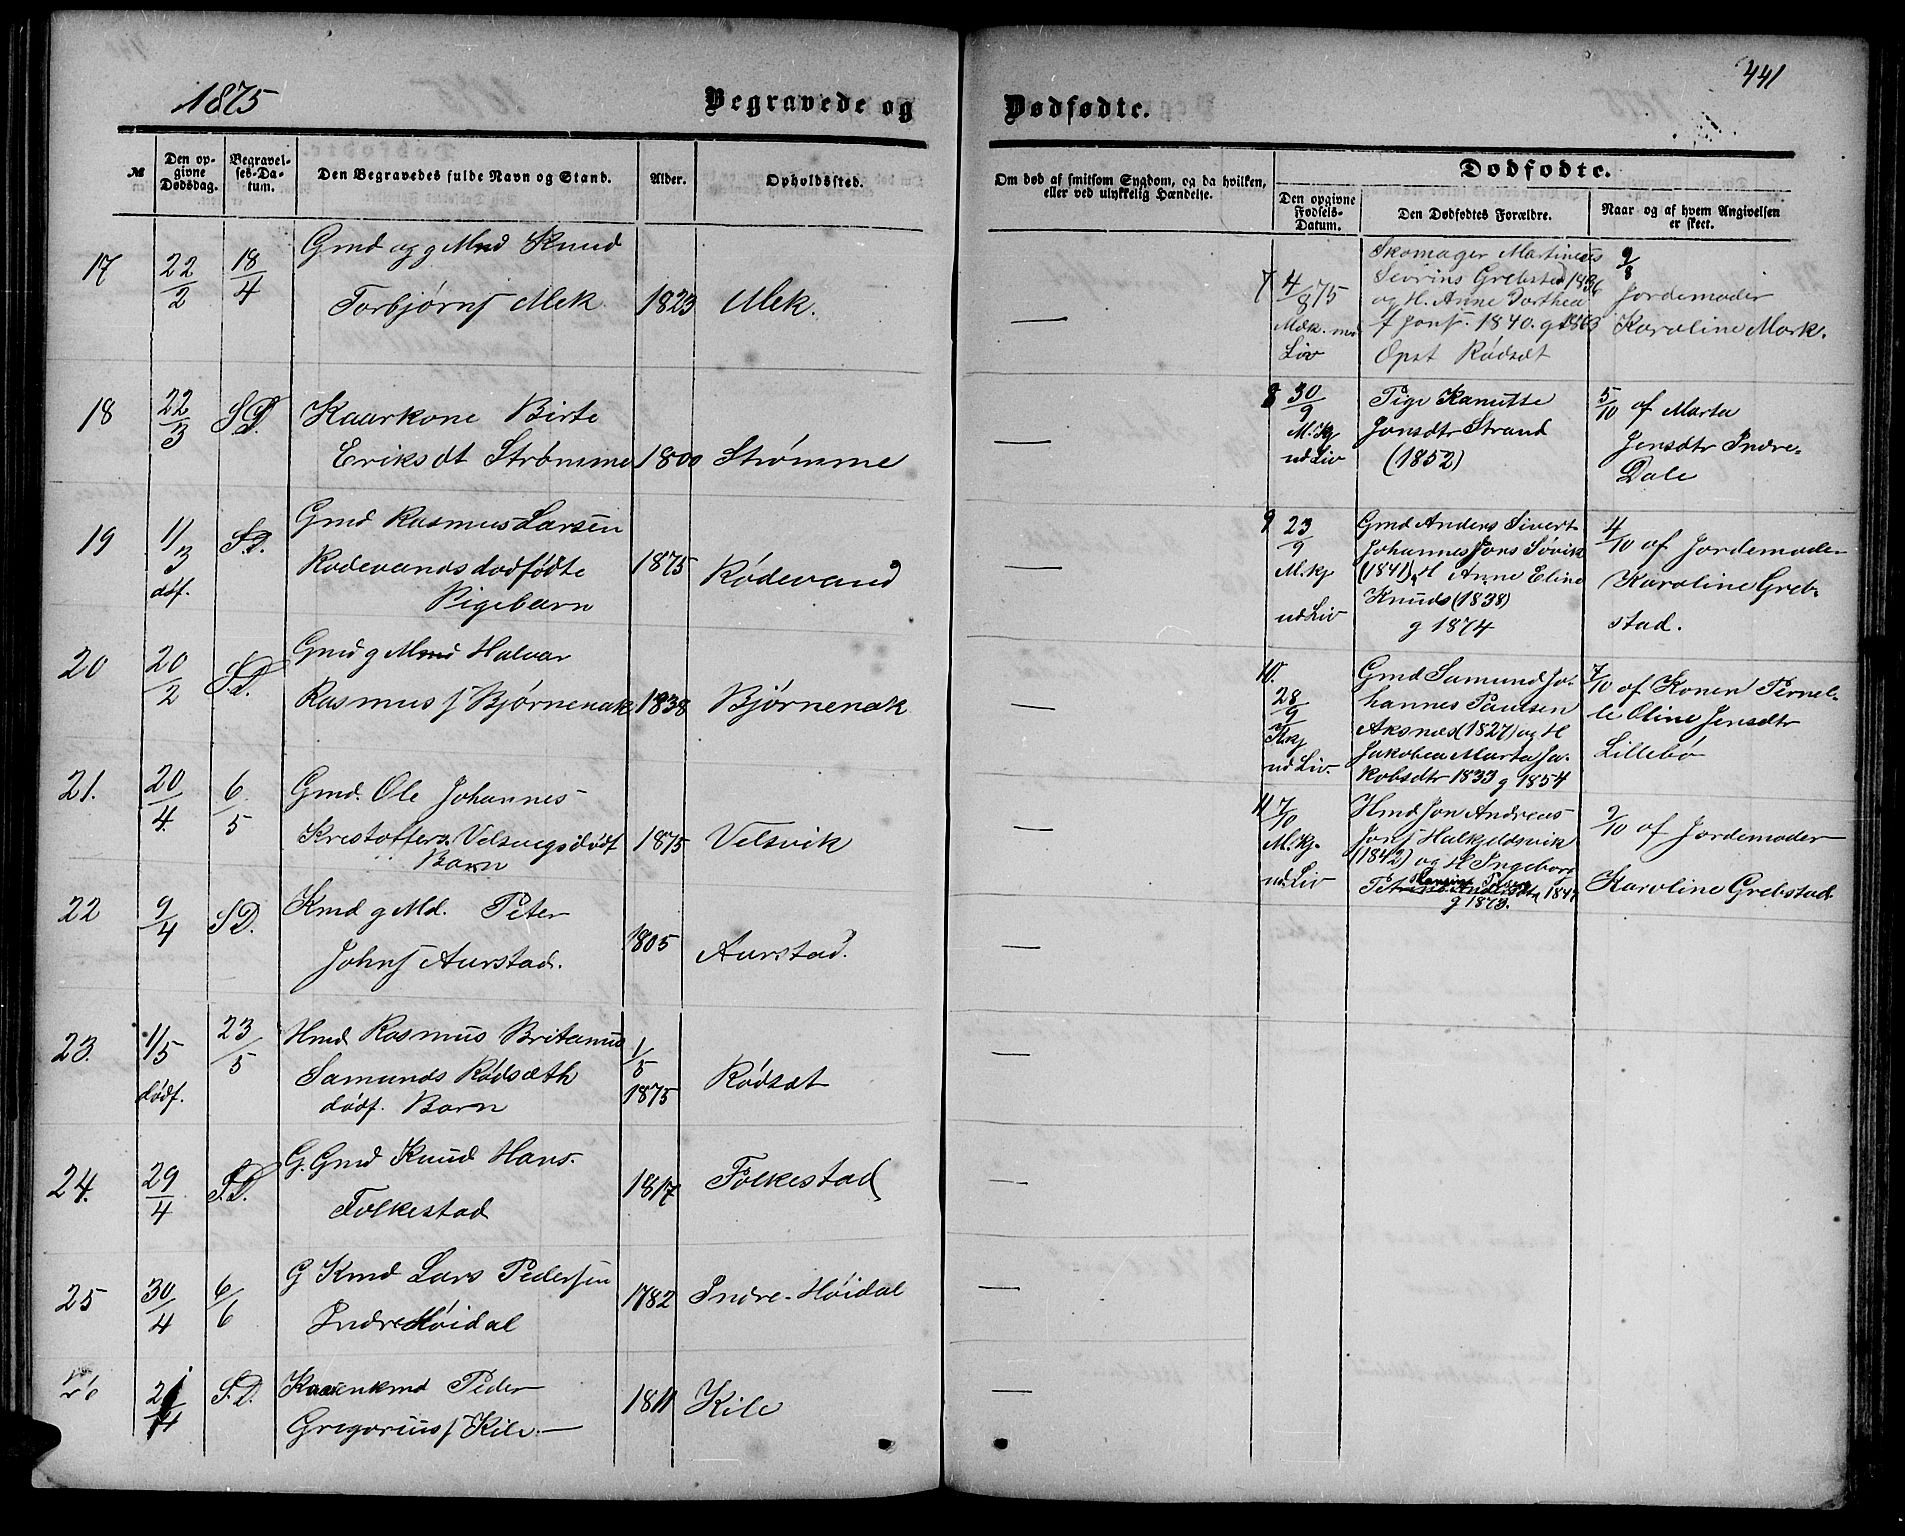 1875
Begravede og
Dødfødte.
441
№
Den opgivne Dødsdag.
Begravelses-Datum.
Den Begravedes fulde Navn og Stand.
Alder.
Opholdssted.
Om død af smitsom Sygdom, og da hvilken, eller ved ulykkelig Hændelse.
Dødfødte.
Den opgivne Fødsels-Datum.
Den Dødfødtes Forældre.
Naar og af hvem Angivelsen er skeet.
17 22/2 18/4 Gmd og g Mnd Knud
Torbjørns Alek 1823 Alek.
18 22/3 S.D. Kaarkone Birte
Eriksdt Strømme 1800 Strømme
19 11/3 S.D. Gmd Rasmus Larsen
døf. Rødevands dødfødte 1875 Rødevand
Pigebarn
20 20/2 S.D. Gmd g Mnd Halvar
Rasmus f Bjørnenak 1838 Bjørnenak
21. 20/4 6/5 Gmd. Ole Johannes
Kristoffers. Velsvigs dødf 1875 Velsvik
Barn
22 9/4 S.D. Kmd g Md. Peter
Johns Aurstad. 1805 Aurstad.
23. 1/5 23/5 Hmd Rasmus Britanus 1/5
dødf. Samunds Rødsæth 1875 Rødsæt
dødf. Barn
24. 29/4 S.D. G. Gmd Knud Hans-
Folkestad 1817 Folkestad
25 30/4 6/6 G Kmd Lars Pedersen
Indre Høidal 1782 Indre-Høidal
26 S.D. Peder
Gregoriusf Kile 1811 Kile
7 4/8 75 Skomager Martinus 9/8
Sevrins Grebstad 1836 Jordemoder
og H. Anne Dorthea Karoline Mark.
Jonsf. 1840. g 1863
Liv Opst Rødsæt
8 30/9 Pige Kanutte 5/10 af Marta
M.kj Jonsdtr Strand Jensdtr Indre-
ud Liv (1852) Dale
9 23/9 Gmd Anders Sivert 4/10 af Jordemoder
M.kj Johannes Jons Søvik Karoline Greb-
(1841) H Anne Eline stad.
ud Liv Knuds (1838)
g 1874
10. 28/9 Gmd Samund Jo- 7/10 af Konen Pernel-
hannes Paulsen le Oline Jensdtr
Aksnæs (1827) og H Lillebø
ud Liv. Jakobea Marta Ja-
kobsdtr 1833 g 1854
11 7/10 Hmd Jon Andreas 9/10 af Jordemoder
M.kj. Jonf Halkjeldsvik
(1842) og H Ingeborg
ud Liv 1847 Karoline Grebstad
g 1873.